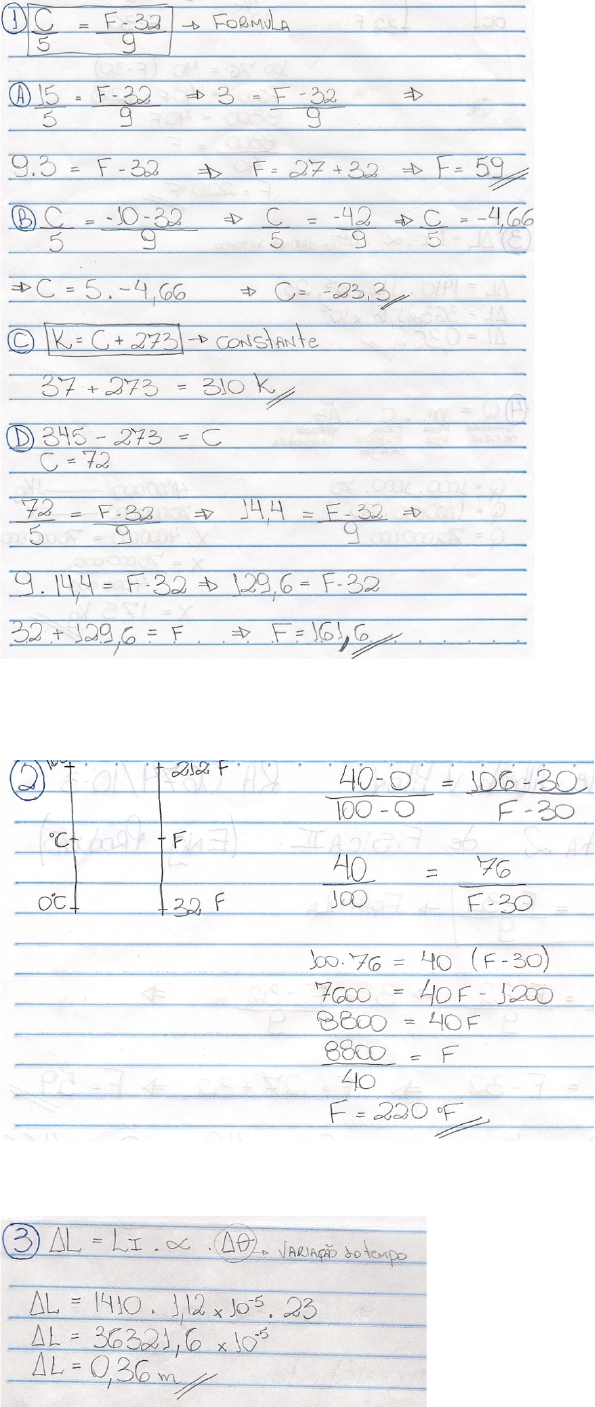 ① C/5 = F-32/9 → FORMULA
Ⓐ 15/5 = F-32/9 ⇒ 3 = F-32/9 ⇒
9.3 = F-32 ⇒ F= 27+32 ⇒ F= 59
Ⓑ C/5 = -10-32/9 ⇒ C/5 = -42/9 ⇒ C/5 = -4,66
⇒ C = 5.-4,66 ⇒ C= -23,3
Ⓒ K = C + 273 → CONSTANTE
37 + 273 = 310 K
Ⓓ 345 - 273 = C
C = 72
72/5 = F-32/9 ⇒ 14,4 = F-32/9 ⇒
9.14,4 = F-32 ⇒ 129,6 = F-32
32 + 129,6 = F ⇒ F= 161,6
② 100 212 F
°C F
0°C 32 F
40-0/100-0 = 106-30/F-30
40/100 = 76/F-30
100.76 = 40 (F-30)
7600 = 40F - 1200
8800 = 40F
8800/40 = F
F = 220 °F
③ ΔL = LI . ∝ . Δθ → VARIAÇÃO do tempo
ΔL = 1410 . 1,12 x 10⁻⁵ . 23
ΔL = 36321,6 x 10⁻⁵
ΔL = 0,36 m